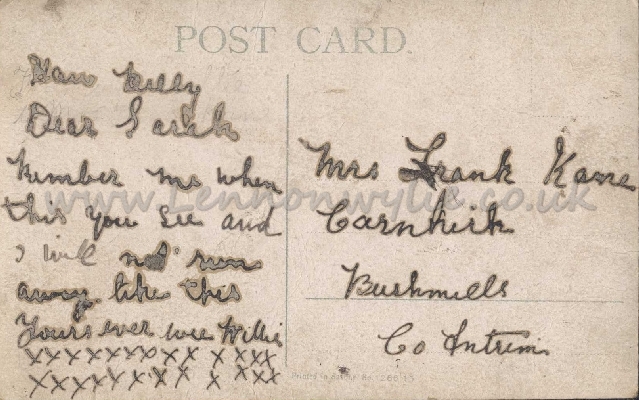 POST CARD.
Dear Sarah
Rember me when
this you see and
I will not run
away like this
Yours ever wee Willie
XXXXXXXX X XXX
XXXXXXX X X XXX
Mrs Frank Kane
Carnkirk
Bushmills
Co Antrim
www.Lennonwylie.co.uk
Printed in